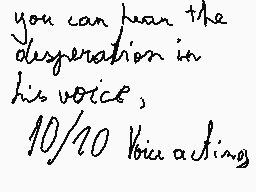 you can hear the
desperation in
his voice,
10/10 Voice acting